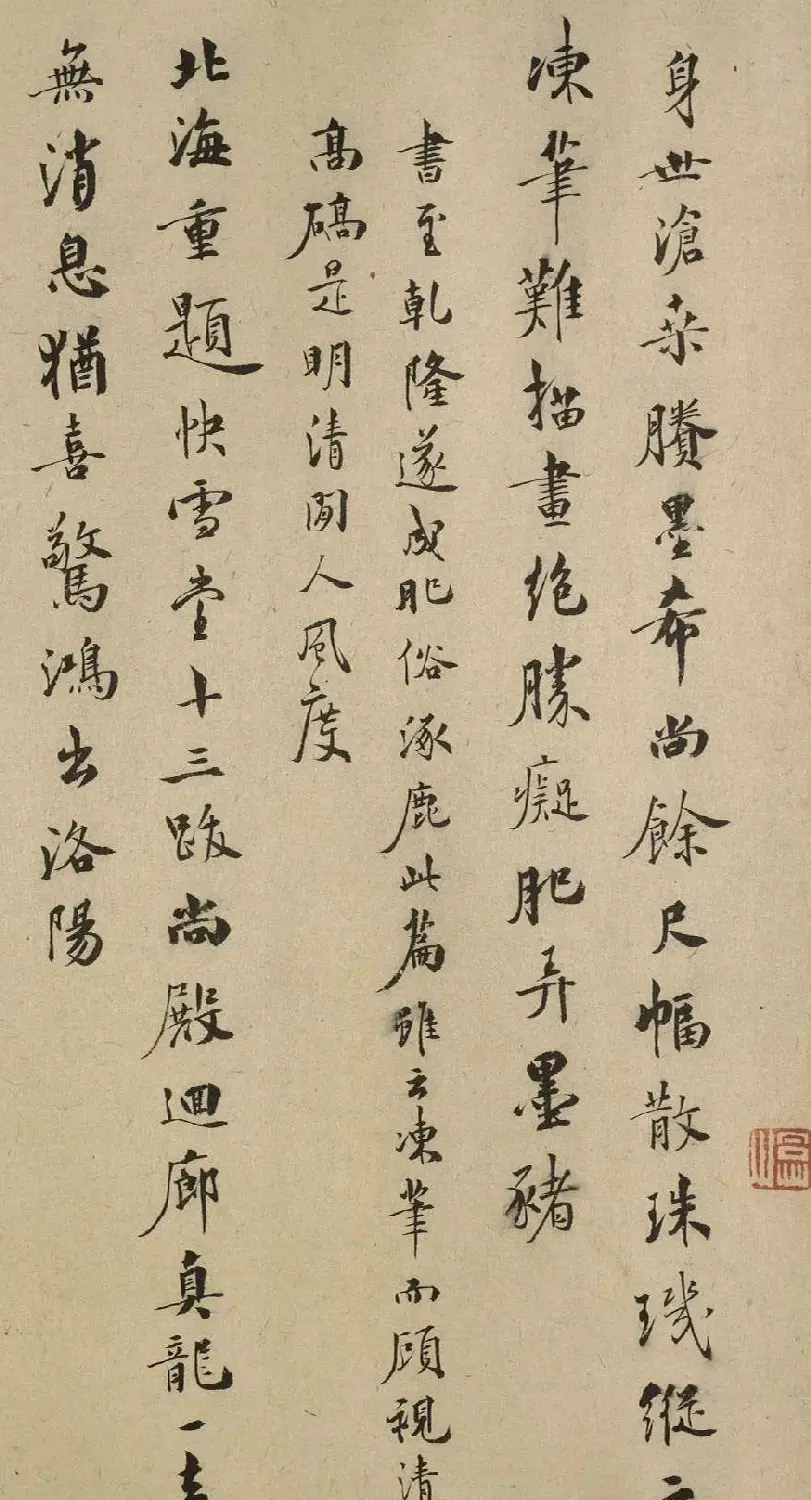 身世滄桑賸墨希尚餘尺幅散珠璣縱
凍筆難描畫絶勝癡肥弄墨豬
書至乾隆遂成肥俗涿鹿此篇雖云凍筆而顧視清
高礄是明清間人風度
北海重題快雪堂十三跋尚殿迴廊真龍一去
無消息猶喜驚鴻出洛陽